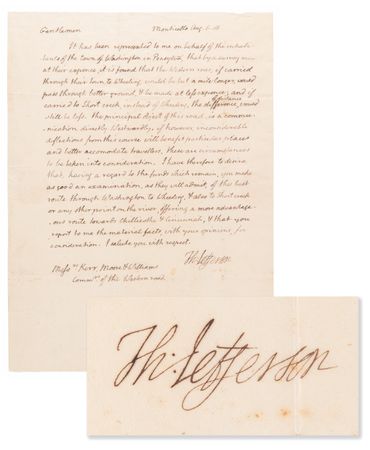 Gentlemen Monticello Aug. 6. 08
It has been represented to me on behalf of the inhabi-
tants of the town of Washington in Pensylva, that by a survey made
at their expence, it is found that the Western road, if carried
through their town to Wheeling, would be but a mile longer, would
pass through better ground, & be made at less expence; and if
carried to Short creek, instead of Wheeling, the difference of distance would
still be less. the principal object of this road is a commu-
nication directly Westwardly. if however inconsiderable
deflections from this course will benefit particular places
and better accomodate travellers, these are circumstances
to be taken into consideration. I have therefore to desire
that, having a regard to the funds which remain, you make
as good an examination, as they will admit, of this best
route through Washington to Wheeling, & also to Short creek
or any other point on the river, offering a more advantage-
ous route towards Chillicothe & Cincinnati, & that you
report to me the material facts, with your opinions, for
consideration. I salute you with respect.
Th: Jefferson
Mess.rs Kerr, Moore & Williams
Comm.rs of the Western road.
Th: Jefferson